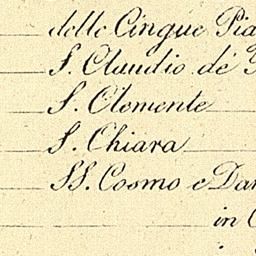 delle Cinque Pia
S. Claudio de'
S. Clemente
S. Chiara
SS. Cosmo e Dam
in